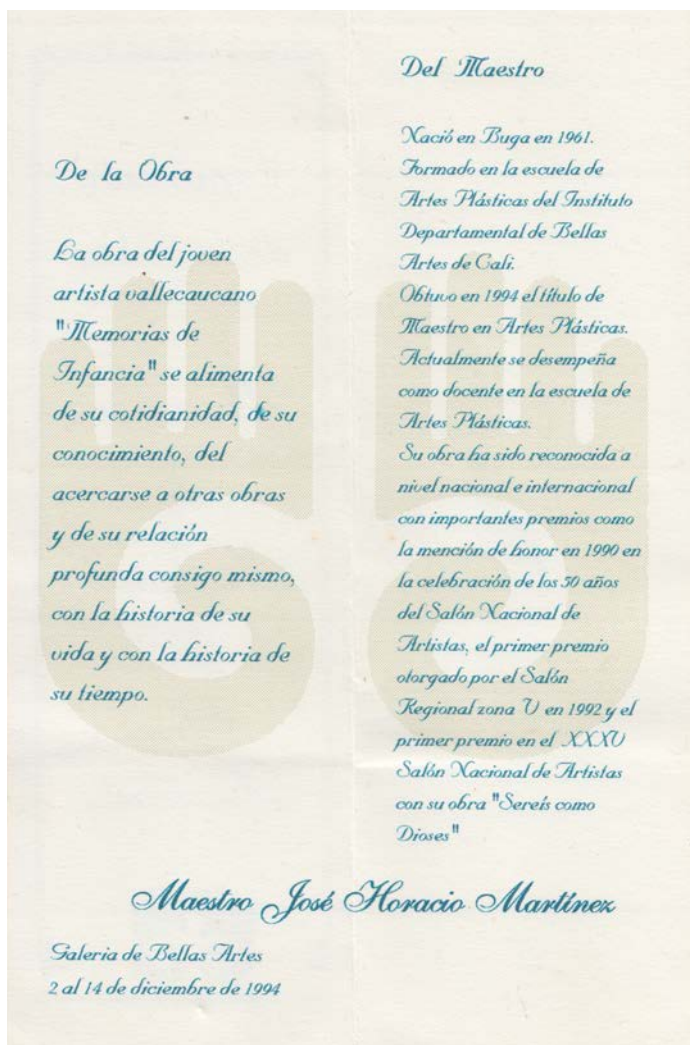 De la Obra
La obra del joven
artista vallecaucano
"Memorias de
Infancia" se alimenta
de su cotidianidad, de su
conocimiento, del
acercarse a otras obras
y de su relación
profunda consigo mismo,
con la historia de su
vida y con la historia de
su tiempo.
Del Maestro
Nació en Buga en 1961.
Formado en la escuela de
Artes Plásticas del Instituto
Departamental de Bellas
Artes de Cali.
Obtuvo en 1994 el título de
Maestro en Artes Plásticas.
Actualmente se desempeña
como docente en la escuela de
Artes Plásticas.
Su obra ha sido reconocida a
nivel nacional e internacional
con importantes premios como
la mención de honor en 1990 en
la celebración de los 50 años
del Salón Nacional de
Artistas, el primer premio
otorgado por el Salón
Regional zona V en 1992 y el
primer premio en el XXXV
Salón Nacional de Artistas
con su obra "Sereís como
Dioses"
Maestro José Horacio Martínez
Galeria de Bellas Artes
2 al 14 de diciembre de 1994